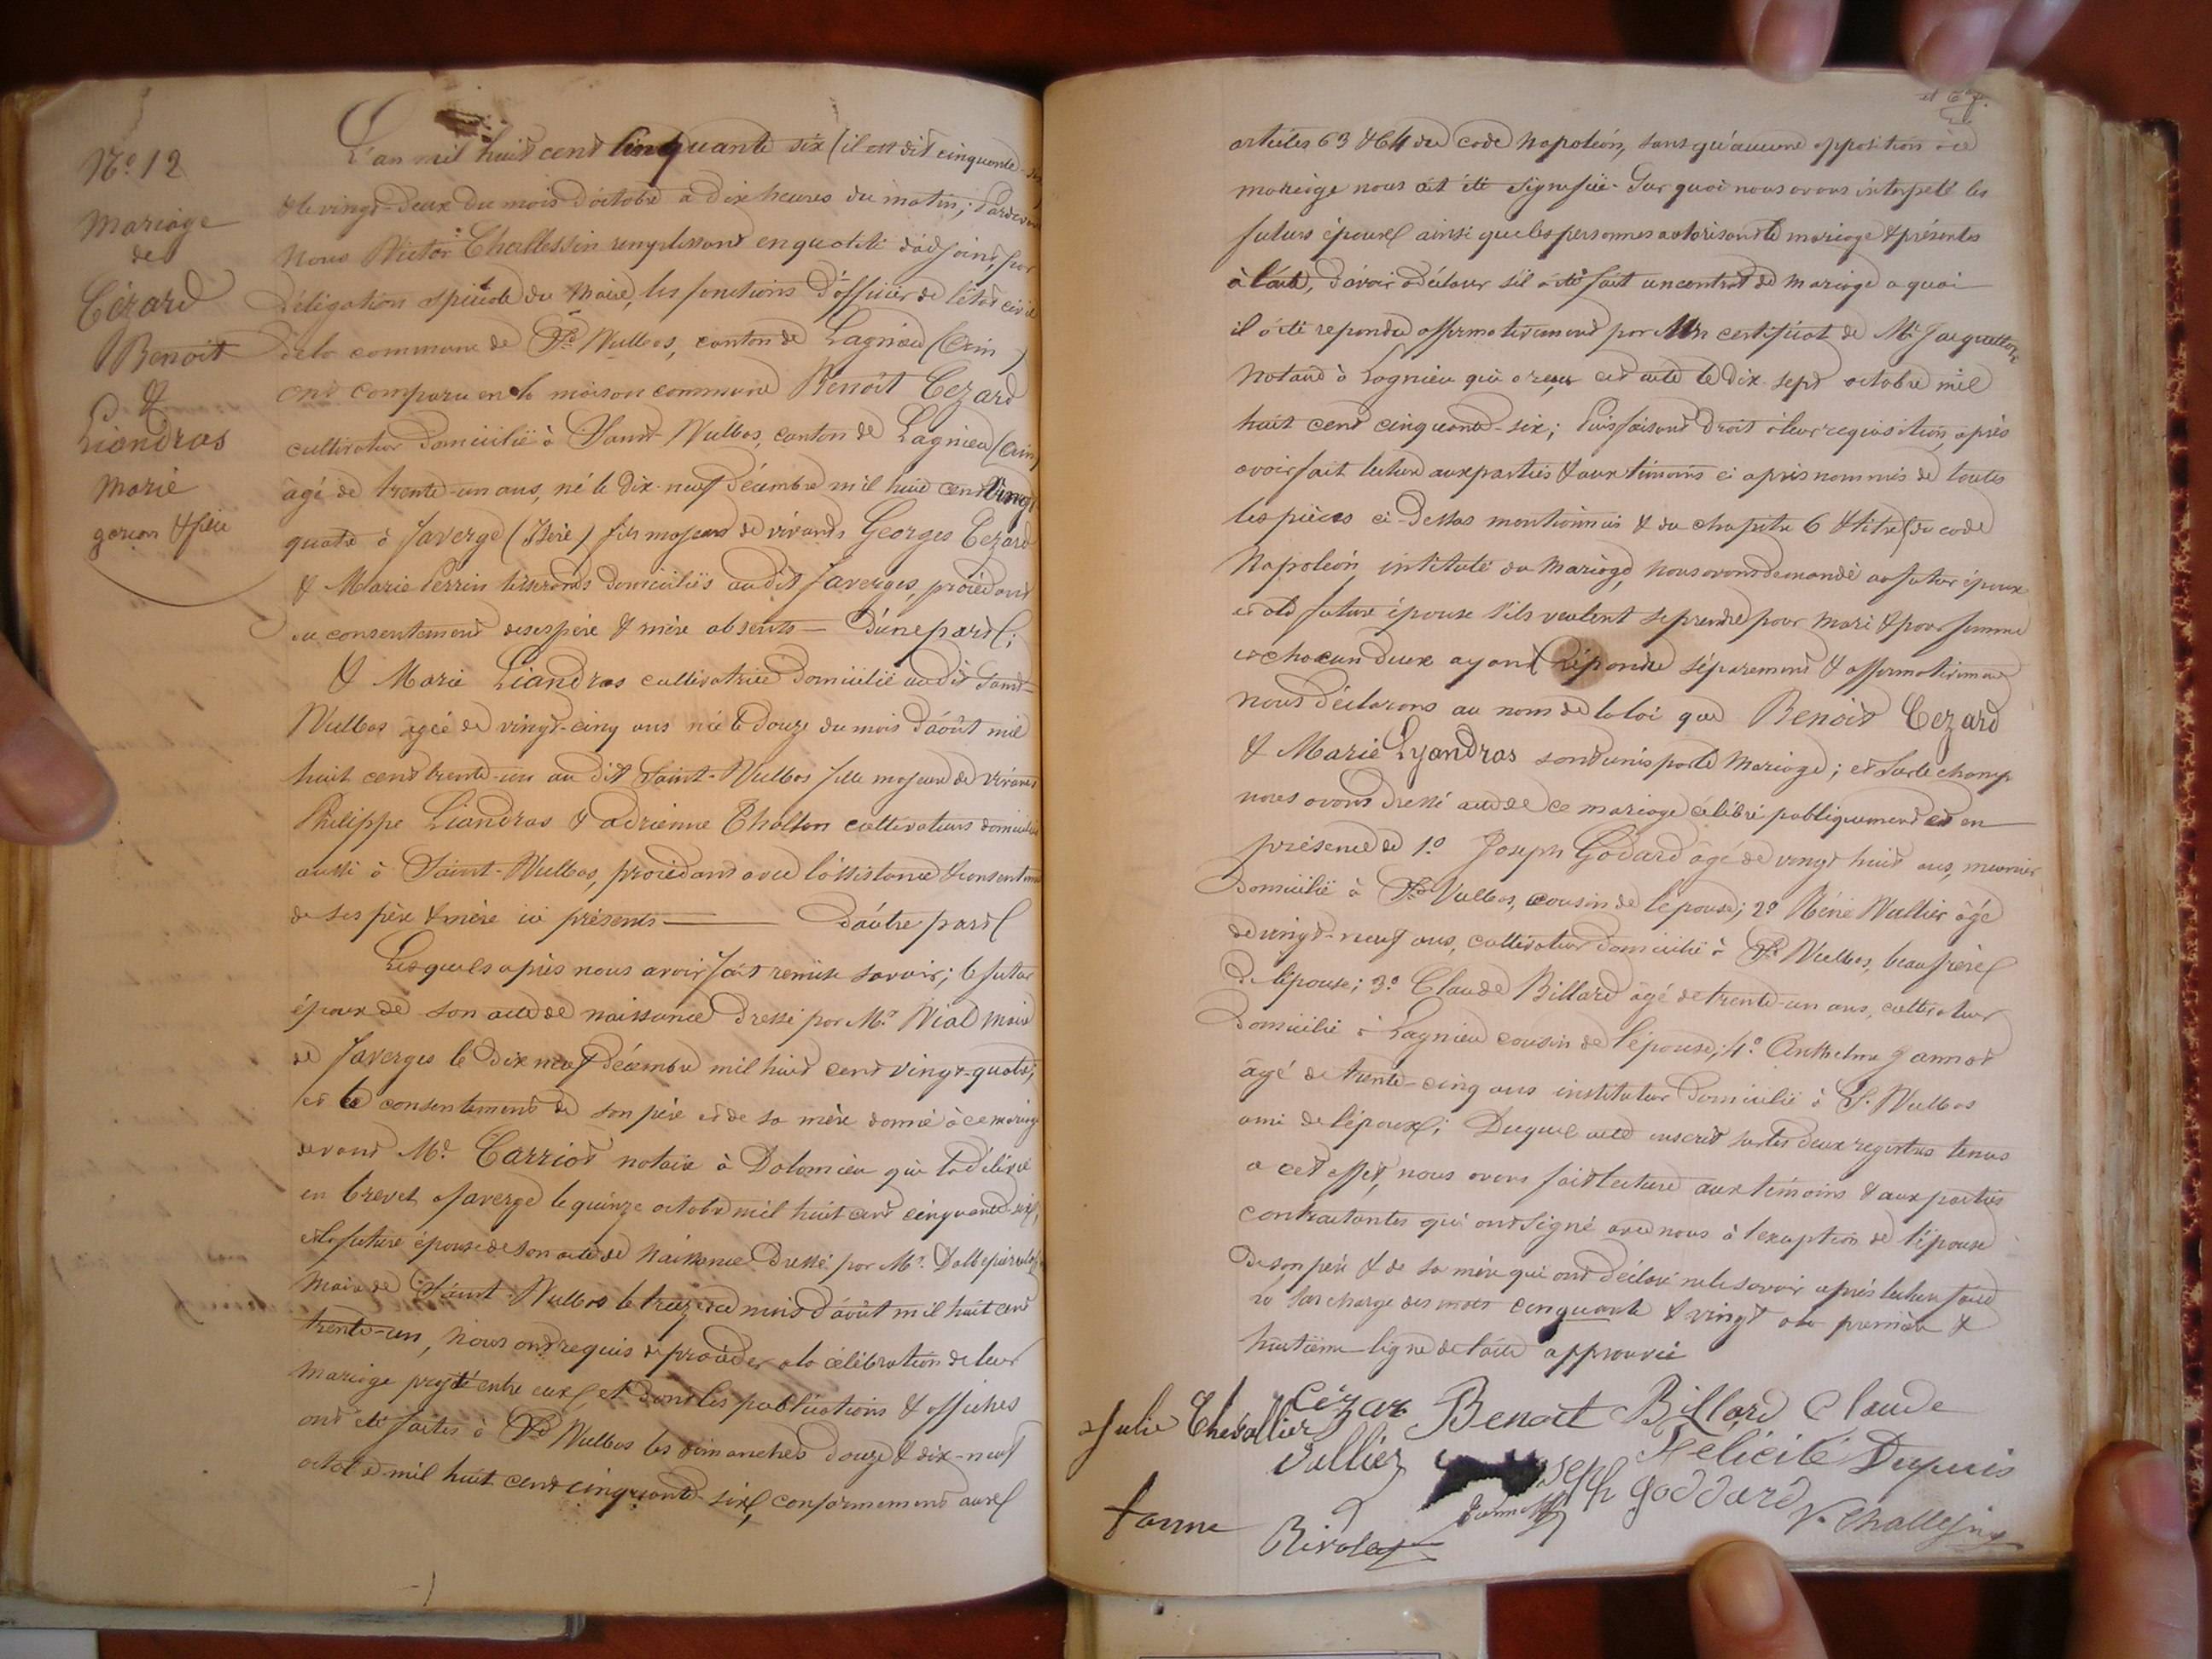 N.º 12
Mariage
de
Cézard
Benoit
&
Liandras
Marie
garçon & fille
L'an mil huit cent cinquante six (il est dit cinquante six)
& le vingt-deux du mois d'octobre a dix heures du matin; Pardevant
Nous Victor Challessin remplissant en qualité d'adjoint, par
délégation spéciale du Maire, les fonctions d'officier de l'état civil
de la commune de St Vulbas, canton de Lagnieu (Ain)
ont comparu en la maison commune Benoît Cezard
cultivateur domicilié à Saint-Vulbas, canton de Lagnieu (Ain)
âgé de trente-un ans, né le dix-neuf décembre mil huit cent vingt
quatre à Faverge (Isère) fils majeur de vivants Georges Cezard
& Marie Perrin tisserands domiciliés au dit Faverges, procédant
du consentement de ses père & mère absents — D'une part;
& Marie Liandras cultivatrice domiciliée au dit Saint-
Vulbas âgée de vingt-cinq ans née le douze du mois d'août mil
huit cent trente-un au dit Saint-Vulbas fille majeure de vivants
Philippe Liandras & adrienne Cholton cultivateurs domiciliés
aussi à Saint-Vulbas, procédant avec l'assistance & consentement
de ses père & mère ici présents — D'autre part
Lesquels après nous avoir fait remise savoir; le futur
époux de son acte de naissance dressé par Mr. Vial maire
de Faverges le dix neuf décembre mil huit cent vingt-quatre;
et le consentement de son père et de sa mère donné à ce mariage
devant Me. Carriot notaire à Dolomieu qui l'a délivré
en brevet a Faverge le quinze octobre mil huit cent cinquante-six,
et la future épouse de son acte de naissance dressé par Mr.
Maire de Saint-Vulbas le treize du mois d'août mil huit cent
trente-un, nous ont requis de procéder a la célébration de leur
mariage projeté entre eux et dont les publications & affiches
ont été faites à St Vulbas les dimanches douze & dix-neuf
octobre mil huit cent cinquante-six, conformement aux
articles 63 & 64 du code Napoléon, sans qu'aucune opposition à ce
mariage nous ait été signifiée. Sur quoi nous avons interpelé les
futurs époux ainsi que les personnes autorisant le mariage & présentes
à l'acte, d'avoir à déclarer s'il a été fait un contrat de mariage a quoi
il a été répondu affirmativement par un certificat de Me Jacquetton
Notaire à Lagnieu qui a reçu cet acte le dix-sept octobre mil
huit cent cinquante-six; Puis faisant droit à leur requisition, après
avoir fait lecture aux parties & aux témoins ci après nommés de toutes
les pièces ci-dessus mentionnées & du chapitre 6 & titre du code
Napoléon, intitulé du Mariage, nous avons demandé au futur époux
et à la future épouse s'ils veulent se prendre pour mari & pour femme
et chacun d'eux ayant répondu séparement & affirmativement
nous déclarons au nom de la loi que Benoit Cezard
& Marie Lyandras sont unis par le Mariage; et sur le champ
nous avons dressé acte de ce mariage célébré publiquement et en
présence de 1º Joseph Godard âgé de vingt huit ans, meunier
domicilié à St Vulbas, cousin de l'épouse; 2º Réné Vullier âgé
de vingt-neuf ans, cultivateur domicilié à St Vulbas, beau frère
de l'épouse; 3º Claude Billard âgé de trente-un ans, cultivateur
domicilié à Lagnieu cousin de l'épouse; 4º Anthelme Jannot
âgé de trente-cinq ans instituteur domicilié à St. Vulbas
ami de l'époux; Duquel acte inscrit sur les deux registres tenus
a cet effet, nous avons fait lecture aux témoins & aux parties
contractantes qui ont signé avec nous à l'exception de l'épouse
de son père & de sa mère qui ont déclaré ne le savoir après lecture faite
la surcharge des mots cinquante & vingt a la première &
huitième ligne de l'acte approuvée
Julie Chevallier Cézar Benoit Billard Claude
Vullier Joseph Goddard Félicité Dupuis
Janne Rivolet Jannot V. Challessin